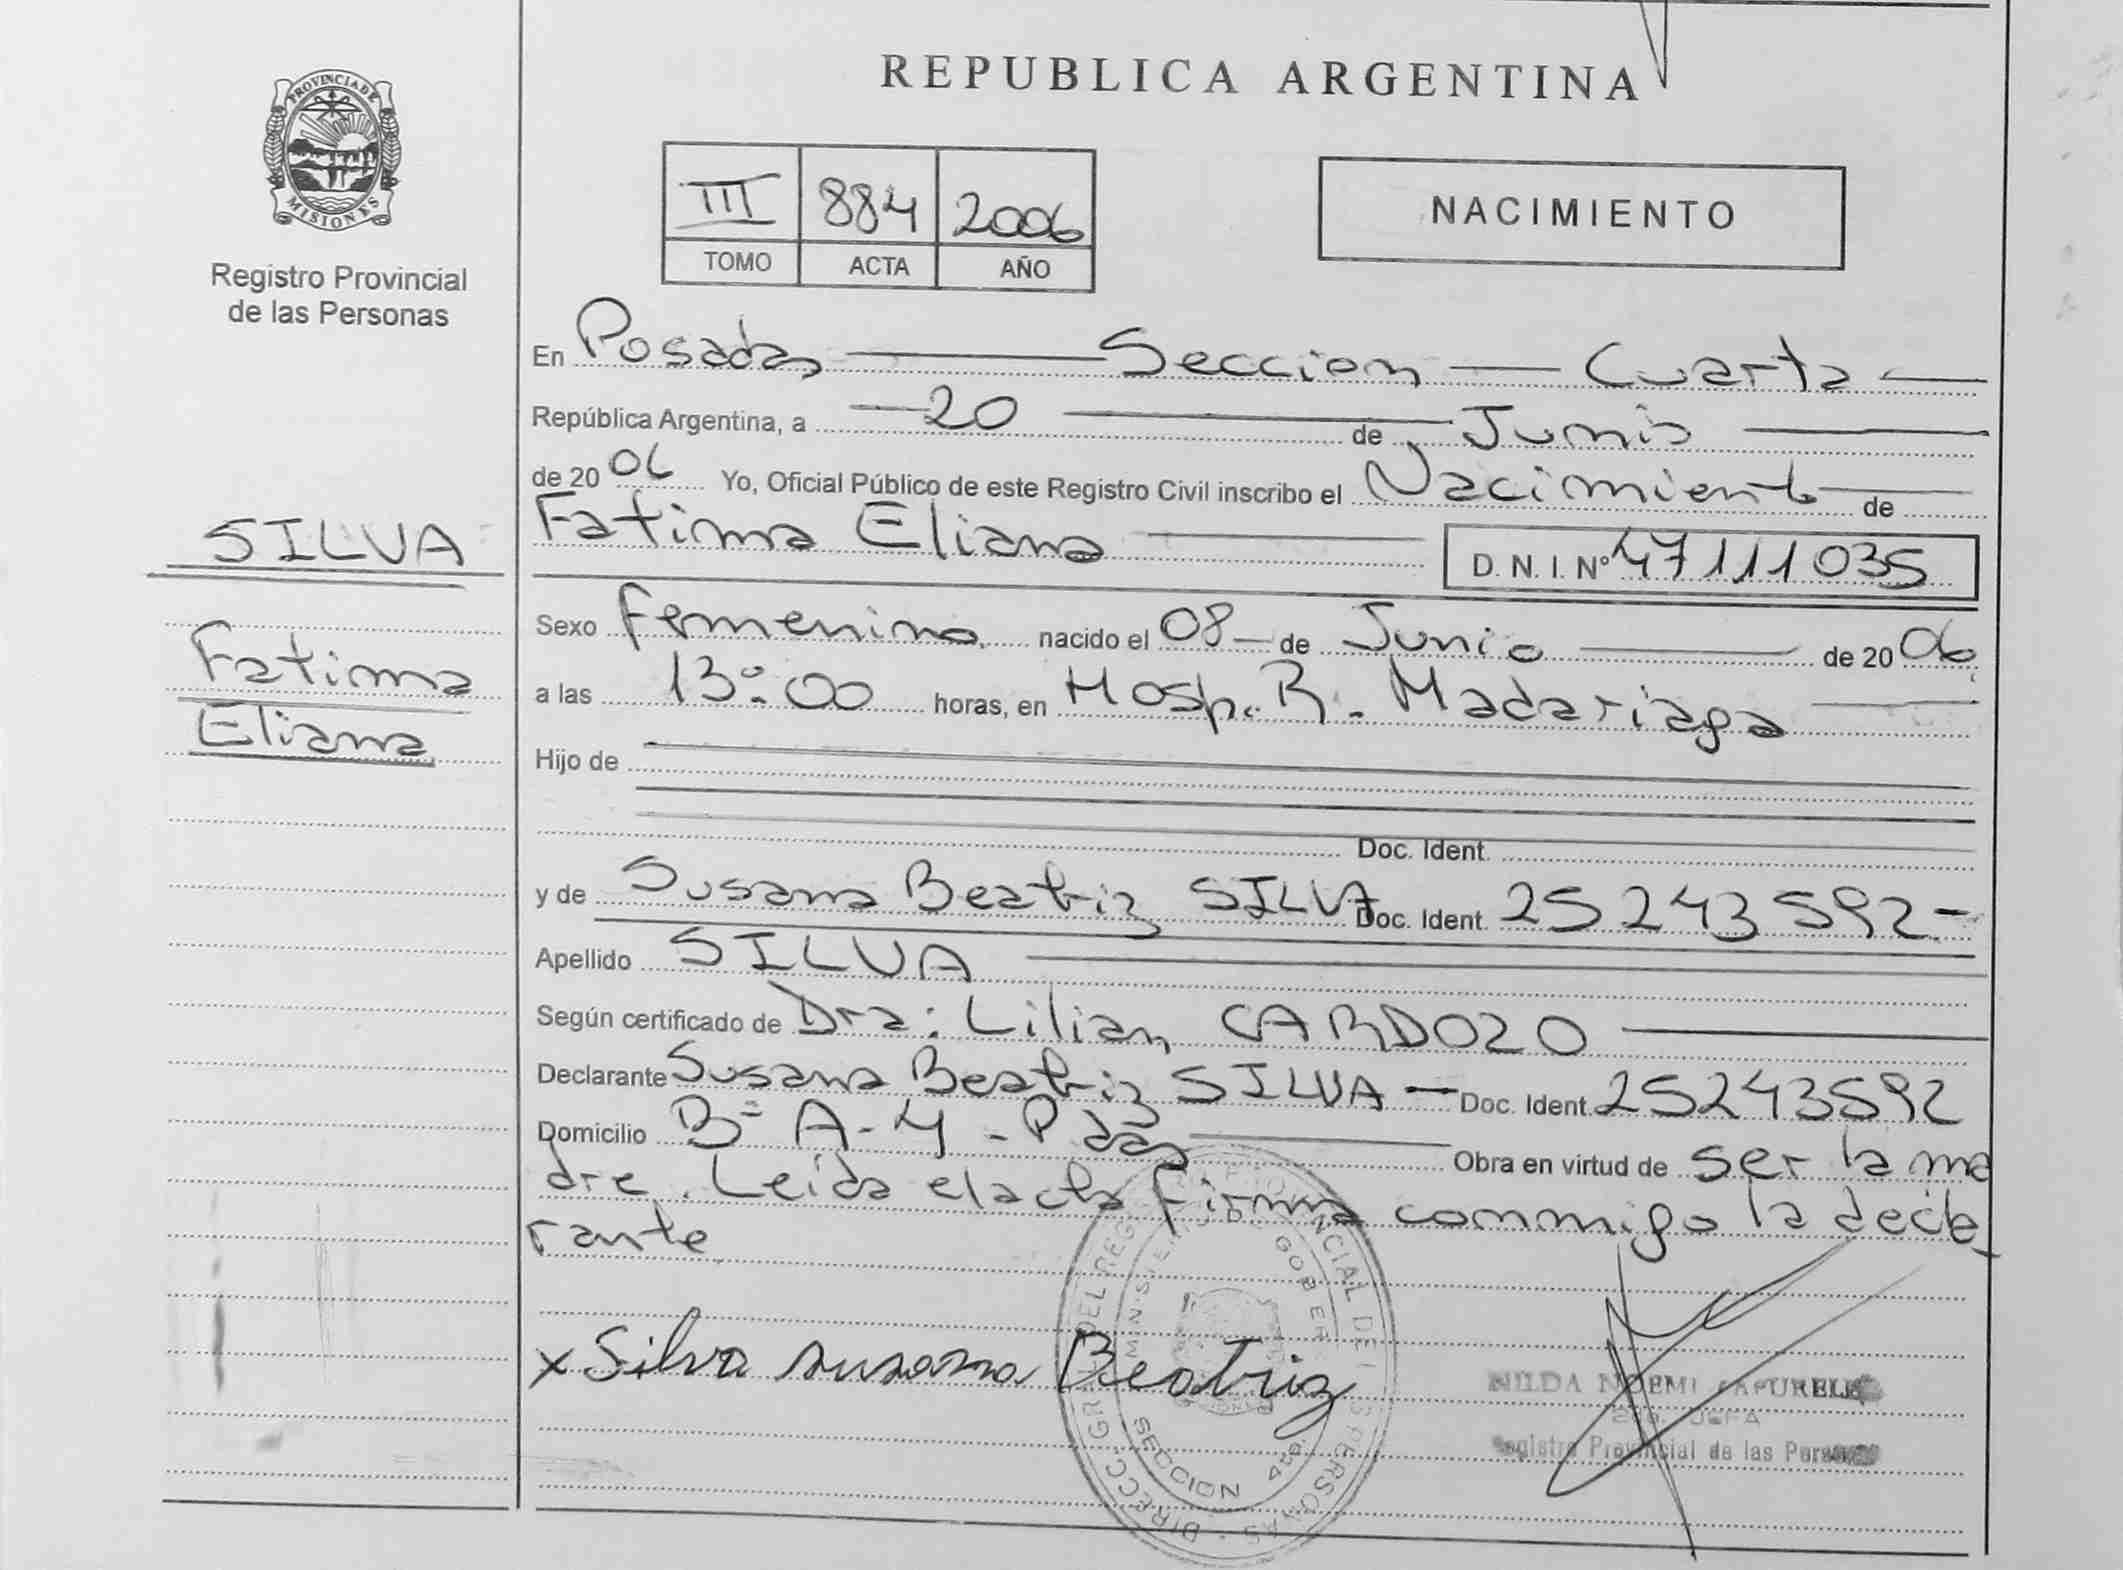 REPUBLICA ARGENTINA
PROVINCIA DE
MISIONES
Registro Provincial
de las Personas
III 884 2006
TOMO ACTA AÑO
NACIMIENTO
En Posadas Seccion Cuarta
República Argentina, a 20 de Junio
de 2006 Yo, Oficial Público de este Registro Civil inscribo el Nacimiento de
Fatima Eliana
D. N. I. Nº 47111035
SILVA
Fatima
Eliana
Sexo Femenino nacido el 08 de Junio de 2006
a las 13:00 horas, en Hosp. R. Madariaga
Hijo de
Doc. Ident.
y de Susana Beatriz SILVA Doc. Ident. 25243592-
Apellido SILVA
Según certificado de Dra: Lilian CARDOZO
Declarante Susana Beatriz SILVA - Doc. Ident. 25243592
Domicilio Bº A-4 - Pdas Obra en virtud de ser la ma
dre. Leida el acta firma conmigo la decla
rante
x Silva susana Beatriz
NILDA NOEMI
JEFA
Registro Provincial de las Personas
DIRECC. GRAL DEL REGISTRO PROVINCIAL DE LAS PERSONAS
SECCION 4ta.